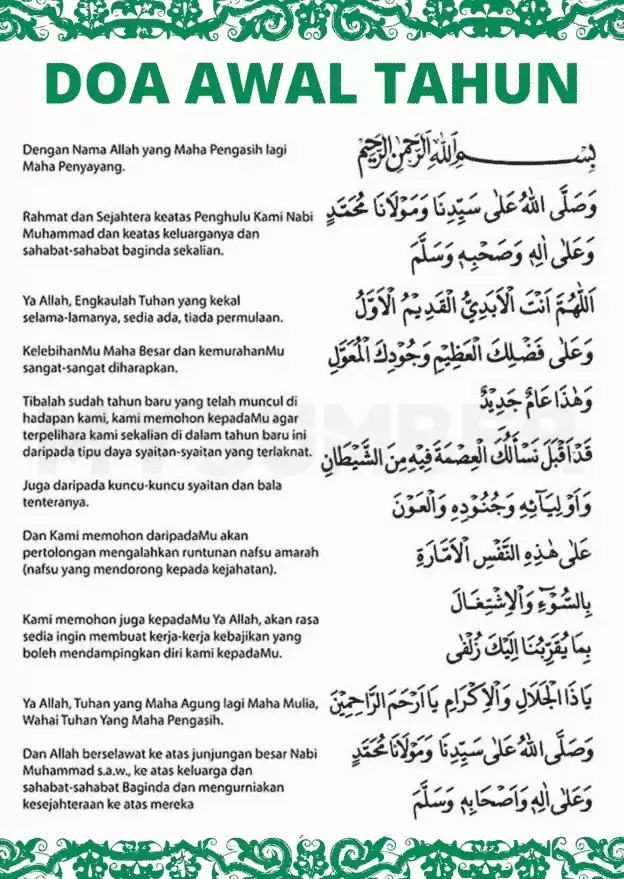 DOA AWAL TAHUN
Dengan Nama Allah yang Maha Pengasih lagi
Maha Penyayang.
Rahmat dan Sejahtera keatas Penghulu Kami Nabi
Muhammad dan keatas keluarganya dan
sahabat-sahabat baginda sekalian.
Ya Allah, Engkaulah Tuhan yang kekal
selama-lamanya, sedia ada, tiada permulaan.
KelebihanMu Maha Besar dan kemurahanMu
sangat-sangat diharapkan.
Tibalah sudah tahun baru yang telah muncul di
hadapan kami, kami memohon kepadaMu agar
terpelihara kami sekalian di dalam tahun baru ini
daripada tipu daya syaitan-syaitan yang terlaknat.
Juga daripada kuncu-kuncu syaitan dan bala
tenteranya.
Dan Kami memohon daripadaMu akan
pertolongan mengalahkan runtunan nafsu amarah
(nafsu yang mendorong kepada kejahatan).
Kami memohon juga kepadaMu Ya Allah, akan rasa
sedia ingin membuat kerja-kerja kebajikan yang
boleh mendampingkan diri kami kepadaMu.
Ya Allah, Tuhan yang Maha Agung lagi Maha Mulia,
Wahai Tuhan Yang Maha Pengasih.
Dan Allah berselawat ke atas junjungan besar Nabi
Muhammad s.a.w., ke atas keluarga dan
sahabat-sahabat Baginda dan mengurniakan
kesejahteraan ke atas mereka
بِسْمِ اللهِ الرَّحْمٰنِ الرَّحِيْمِ
وَصَلَّى اللهُ عَلٰى سَيِّدِنَا وَمَوْلَانَا مُحَمَّدٍ
وَعَلٰى اٰلِهٖ وَصَحْبِهٖ وَسَلَّمَ
اَللّٰهُمَّ اَنْتَ الْاَبَدِيُّ الْقَدِيْمُ الْاَوَّلُ
وَعَلٰى فَضْلِكَ الْعَظِيْمِ وَجُوْدِكَ الْمُعَوَّلِ
وَهٰذَا عَامٌ جَدِيْدٌ
قَدْ اَقْبَلَ نَسْأَلُكَ الْعِصْمَةَ فِيْهِ مِنَ الشَّيْطَانِ
وَاَوْلِيَآئِهِ وَجُنُوْدِهِ وَالْعَوْنَ
عَلٰى هٰذِهِ النَّفْسِ الْاَمَّارَةِ
بِالسُّوْٓءِ وَالْاِشْتِغَالَ
بِمَا يُقَرِّبُنَا اِلَيْكَ زُلْفٰى
يَا ذَا الْجَلَالِ وَالْاِكْرَامِ يَا اَرْحَمَ الرَّاحِمِيْنَ
وَصَلَّى اللهُ عَلٰى سَيِّدِنَا وَمَوْلَانَا مُحَمَّدٍ
وَعَلٰى اٰلِهِ وَاَصْحَابِهِ وَسَلَّمَ